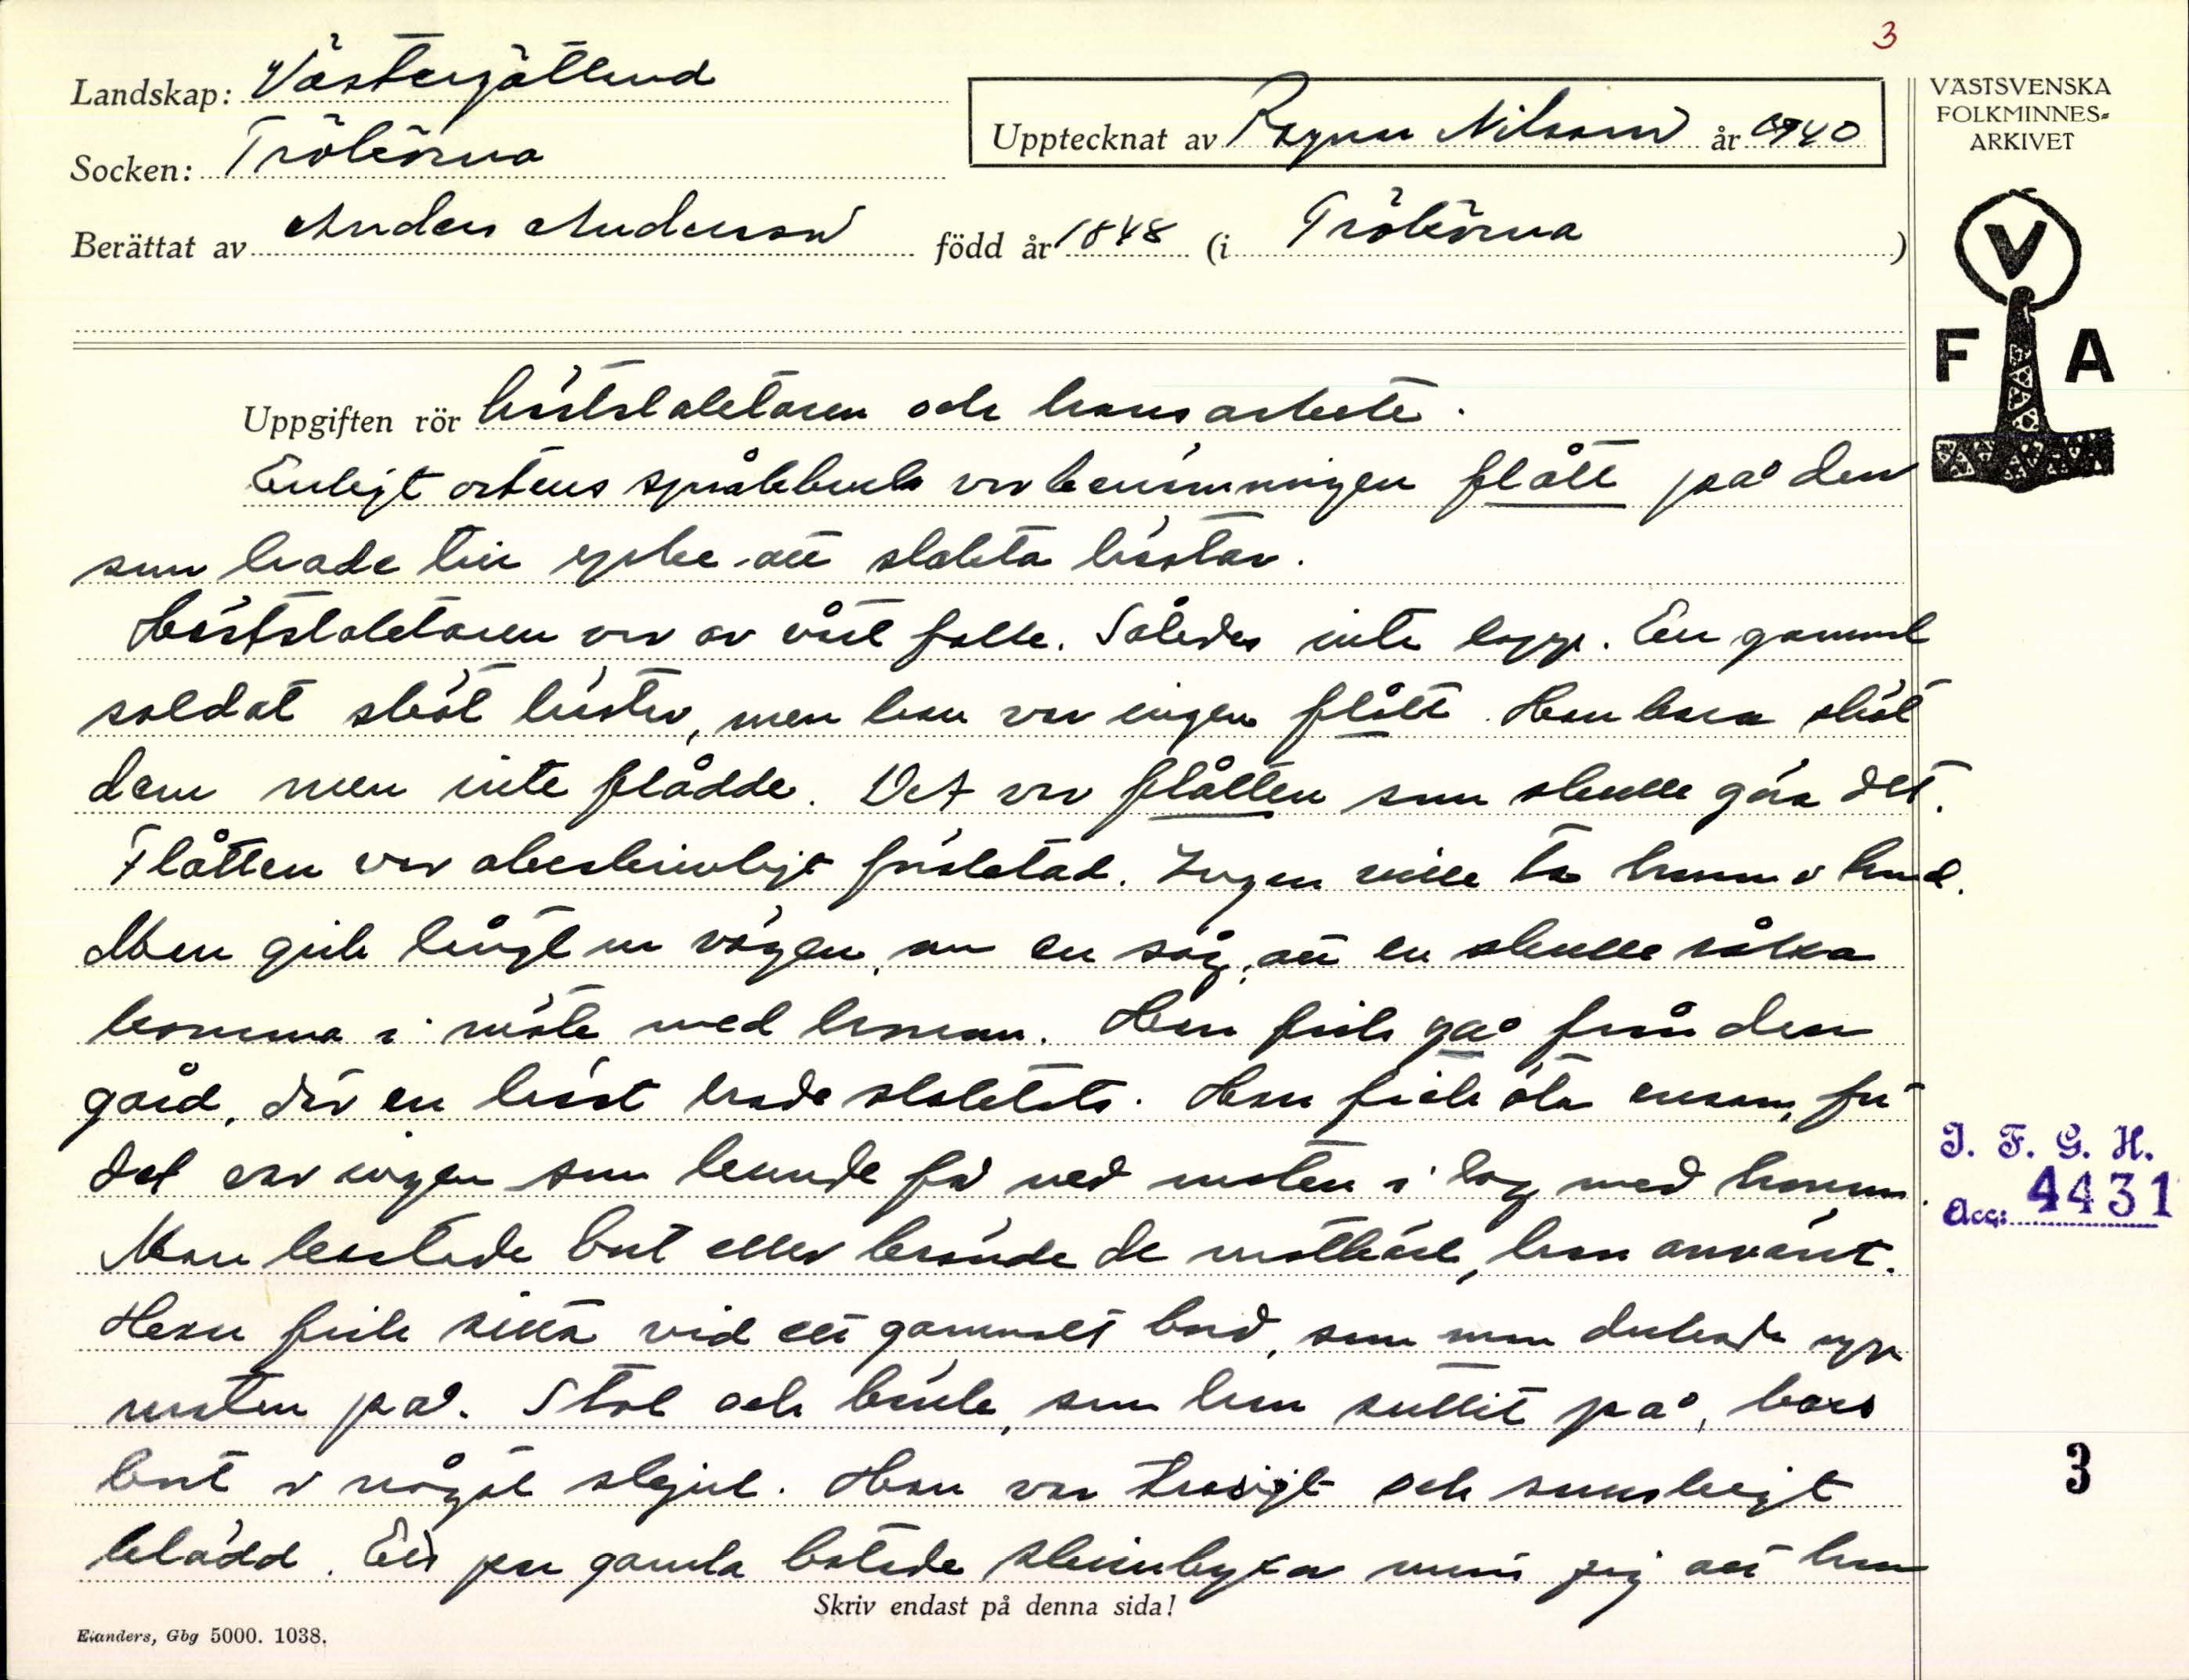 3
Landskap: Västergötland
Upptecknat av Ragnar Nilsson år 1940
Socken: Trökörna
Berättat av Anders Andersson född år 1848 (i Trökörna)
VÄSTSVENSKA
FOLKMINNES-
ARKIVET
V
F A
Uppgiften rör hästslaktaren och hans arbete.
Enligt ortens språkbruk var benämningen flått på den
som hade till yrke att slakta hästar.
Hästslaktaren var av vårt folk. Således inte lapp. En gammal
soldat sköt hästar, men han var ingen flått. Han bara sköt
dem men inte flådde. Det var flåtten som skulle göra det.
Flåtten var obeskrivligt föraktad. Ingen ville ta honom i hand.
Men gick långt ur vägen, om en såg, att en skulle råka
komma i möte med honom. Han fick gå från den
gård, där en häst hade slaktats. Han fick äta ensam, för
det var ingen som kunde få ned maten i lag med honom.
Man kastade bort eller brände de matkärl, han använt.
Han fick sitta vid ett gammalt bord, som man dukade upp
maten på. Stol och bänk, som han suttit på, bars
bort i något skjul. Han var trasigt och snuskigt
klädd. Ett par gamla lottade skinnbyxor minns jag att han
Skriv endast på denna sida!
Elanders, Gbg 5000. 1038.
I. F. G. H.
Acc: 4431
3